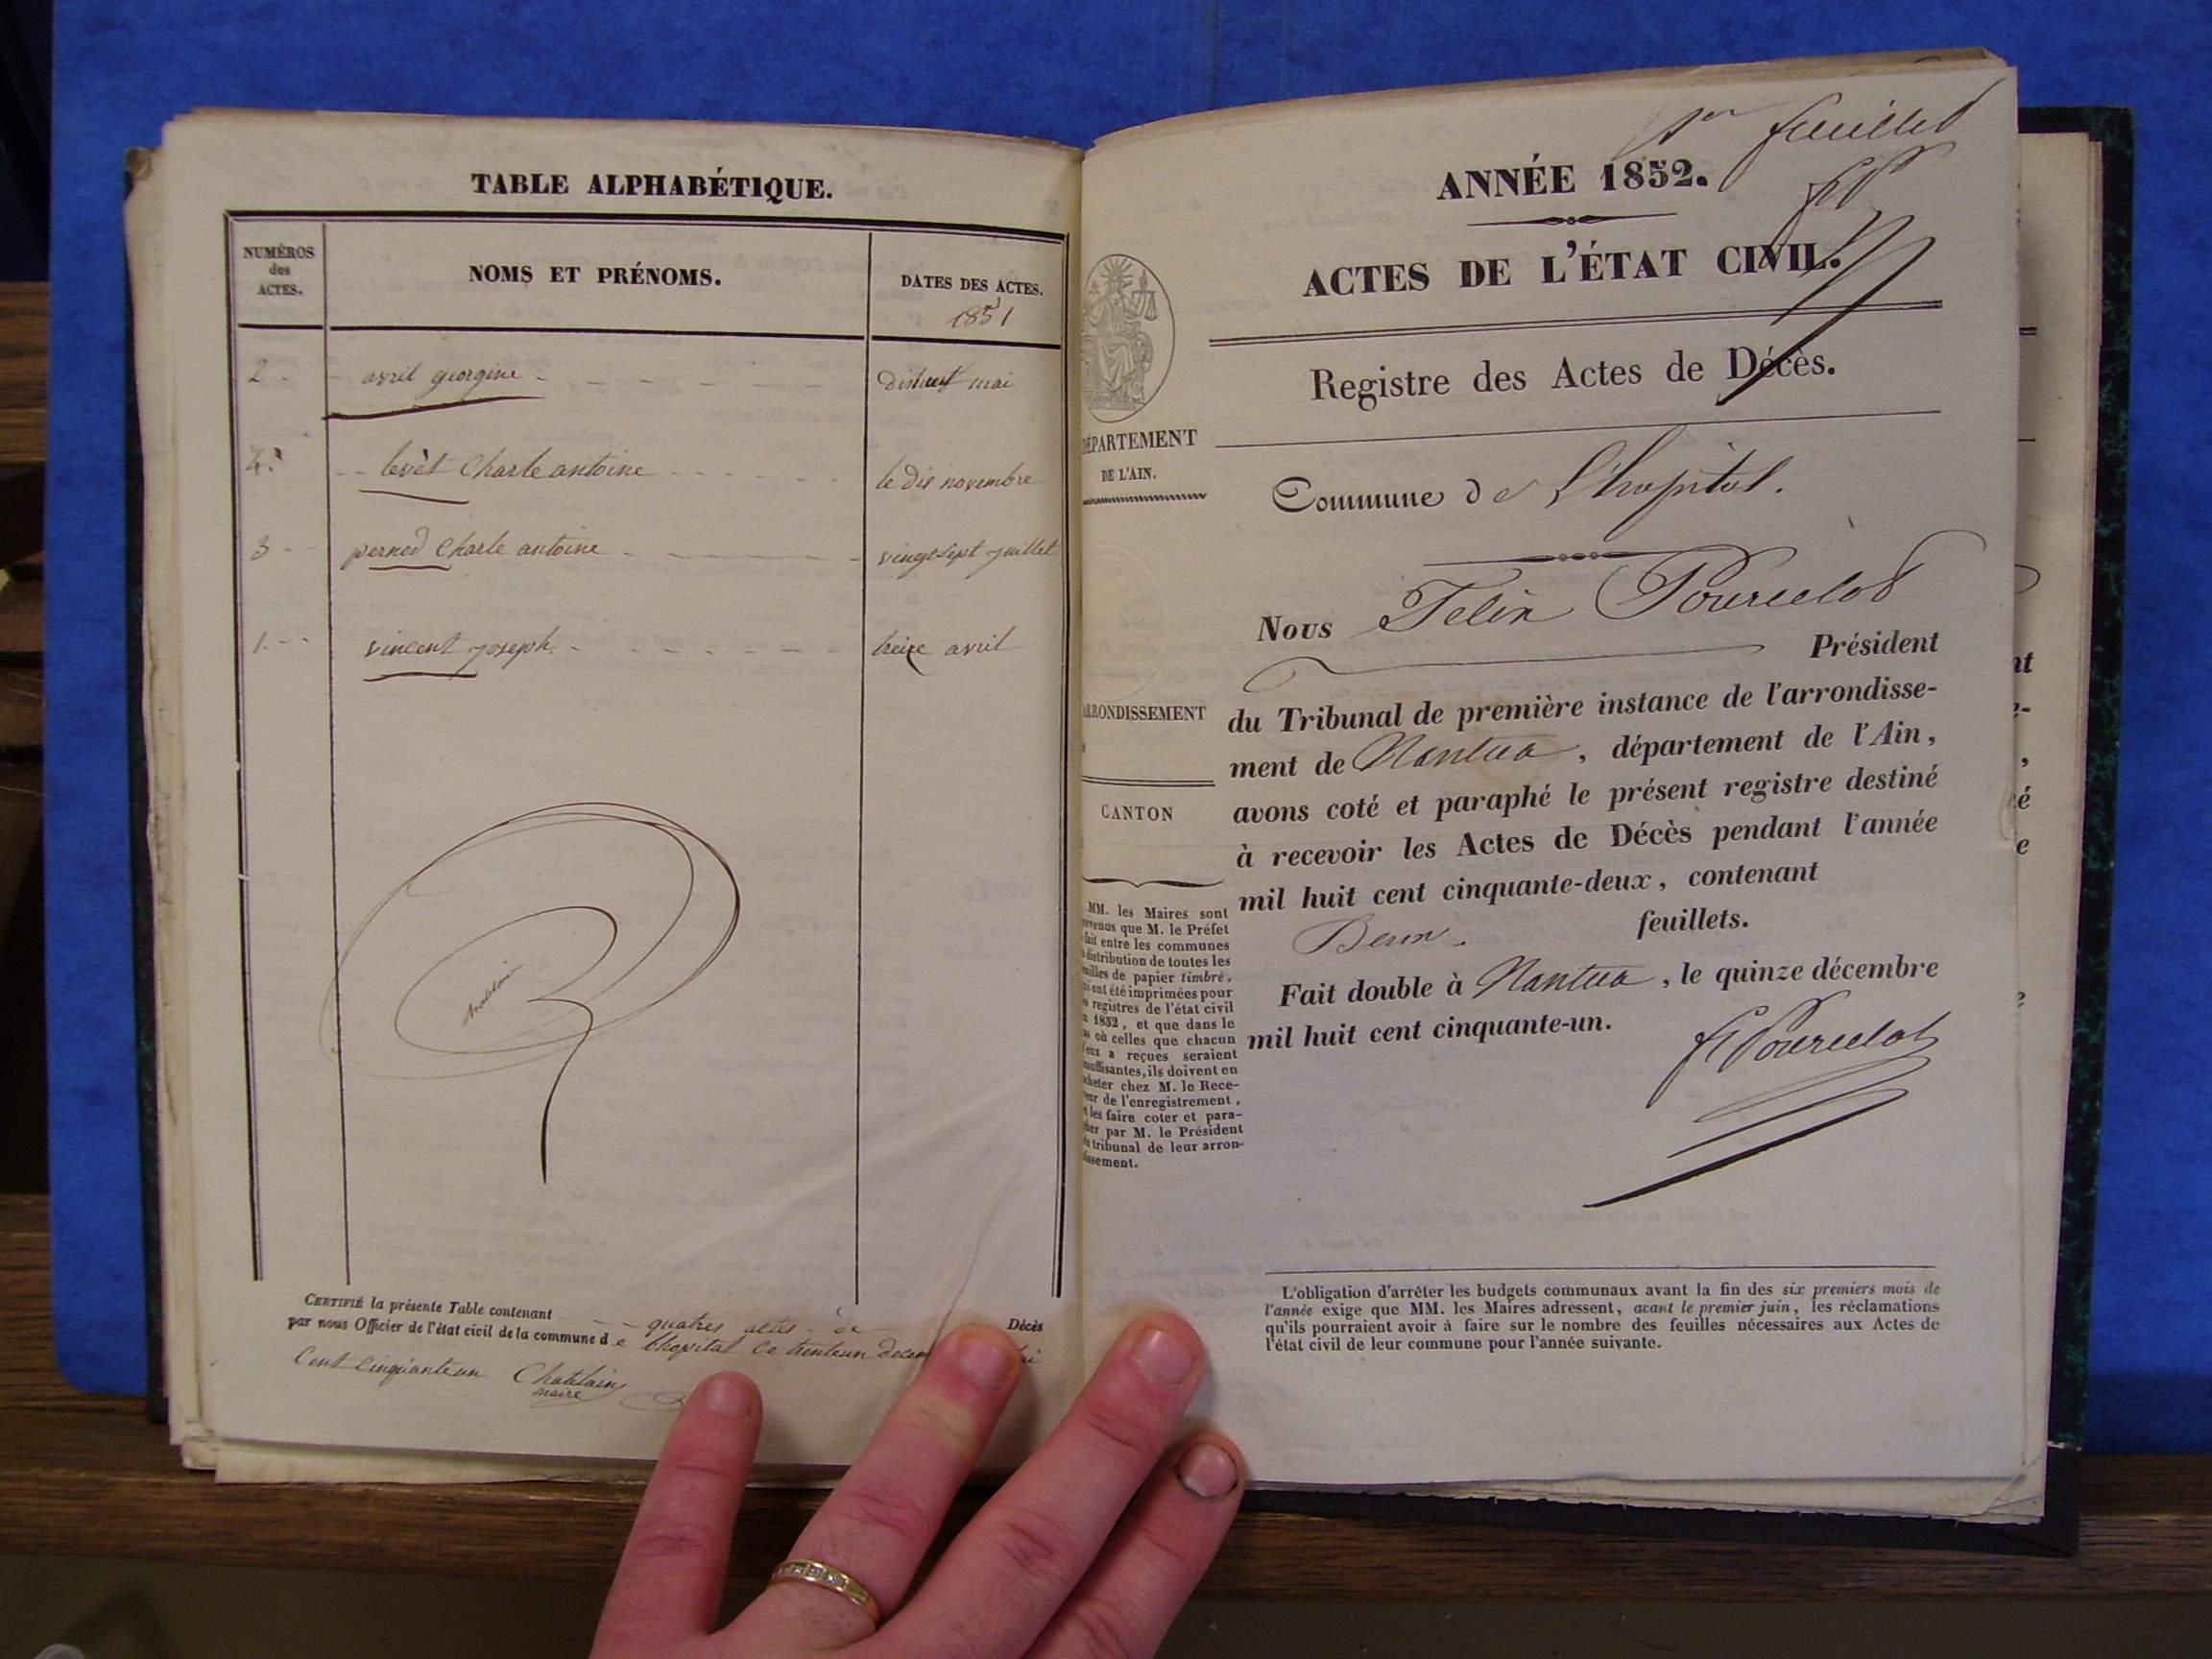 TABLE ALPHABÉTIQUE.
NUMÉROS
des
ACTES.
NOMS ET PRÉNOMS.
DATES DES ACTES.
1851
2 avril georgine dishuit mai
4 levèt Charle antoine le dix novembre
3 pernod Charle antoine vingt sept juillet
1 vincent joseph treize avril
CERTIFIÉ la présente Table contenant quatres actes de Décès
par nous Officier de l'état civil de la commune de lhopital ce trenteun decem
Cent Cinquante un Chatelain
maire
1er feuillet
ANNÉE 1852.
ACTES DE L'ÉTAT CIVIL.
Registre des Actes de Décès.
DÉPARTEMENT
DE L'AIN.
Commune de L'hopital.
Nous Felix Pourcelot
Président
ARRONDISSEMENT
du Tribunal de première instance de l'arrondisse-
ment de Nantua, département de l'Ain,
avons coté et paraphé le présent registre destiné
à recevoir les Actes de Décès pendant l'année
mil huit cent cinquante-deux, contenant
Deux feuillets.
Fait double à Nantua, le quinze décembre
mil huit cent cinquante-un.
F Pourcelot
CANTON
MM. les Maires sont
que M. le Préfet
fait entre les communes
distribution de toutes les
de papier timbré,
ont été imprimées pour
registres de l'état civil
1852, et que dans le
où celles que chacun
a reçues seraient
ils doivent en
chez M. le Rece-
de l'enregistrement,
les faire coter et para-
par M. le Président
tribunal de leur arron-
L'obligation d'arrêter les budgets communaux avant la fin des six premiers mois de
l'année exige que MM. les Maires adressent, avant le premier juin, les réclamations
qu'ils pourraient avoir à faire sur le nombre des feuilles nécessaires aux Actes de
l'état civil de leur commune pour l'année suivante.